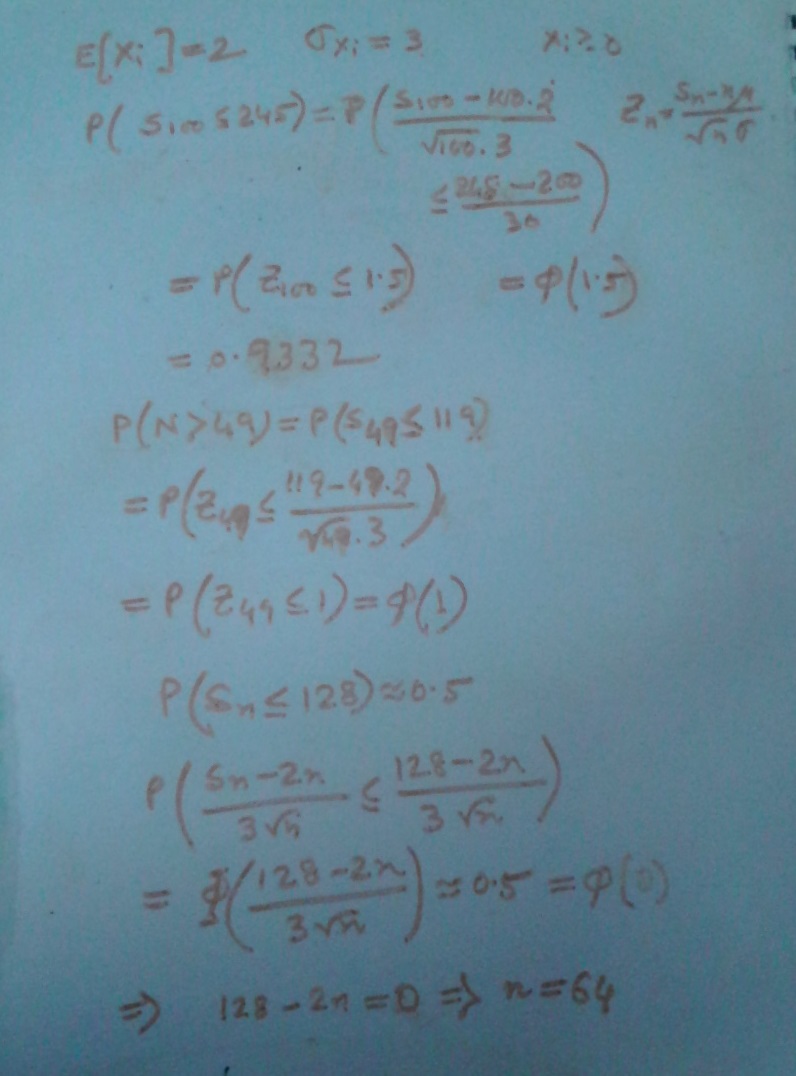 E[Xi] = 2 σXi = 3 Xi ≥ 0
P( S100 ≤ 245) = P( (S100 - 100.2)/(√100 . 3) Zn = (Sn - nμ)/(√n σ)
≤ (245 - 200)/30 )
= P( Z100 ≤ 1.5) = φ(1.5)
= 0.9332
P(N > 49) = P(S49 ≤ 119)
= P( Z49 ≤ (119 - 49.2)/(√49 . 3) )
= P( Z49 ≤ 1) = φ(1)
P( Sn ≤ 128) ≈ 0.5
P( (Sn - 2n)/(3√n) ≤ (128 - 2n)/(3√n) )
= Φ( (128 - 2n)/(3√n) ) ≈ 0.5 = φ(0)
⇒ 128 - 2n = 0 ⇒ n = 64